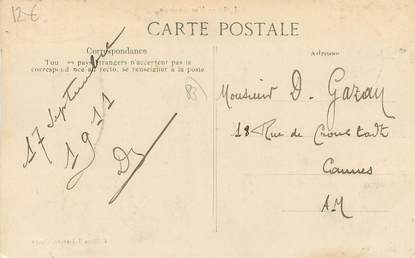 12€
CARTE POSTALE
Correspondance
Tous les pays étrangers n'acceptent pas la
correspondance au recto, se renseigner à la poste
Adresse
17 Septembre
1911
Monsieur D. Gazay
18 Rue de Cronstadt
Cannes
A.M